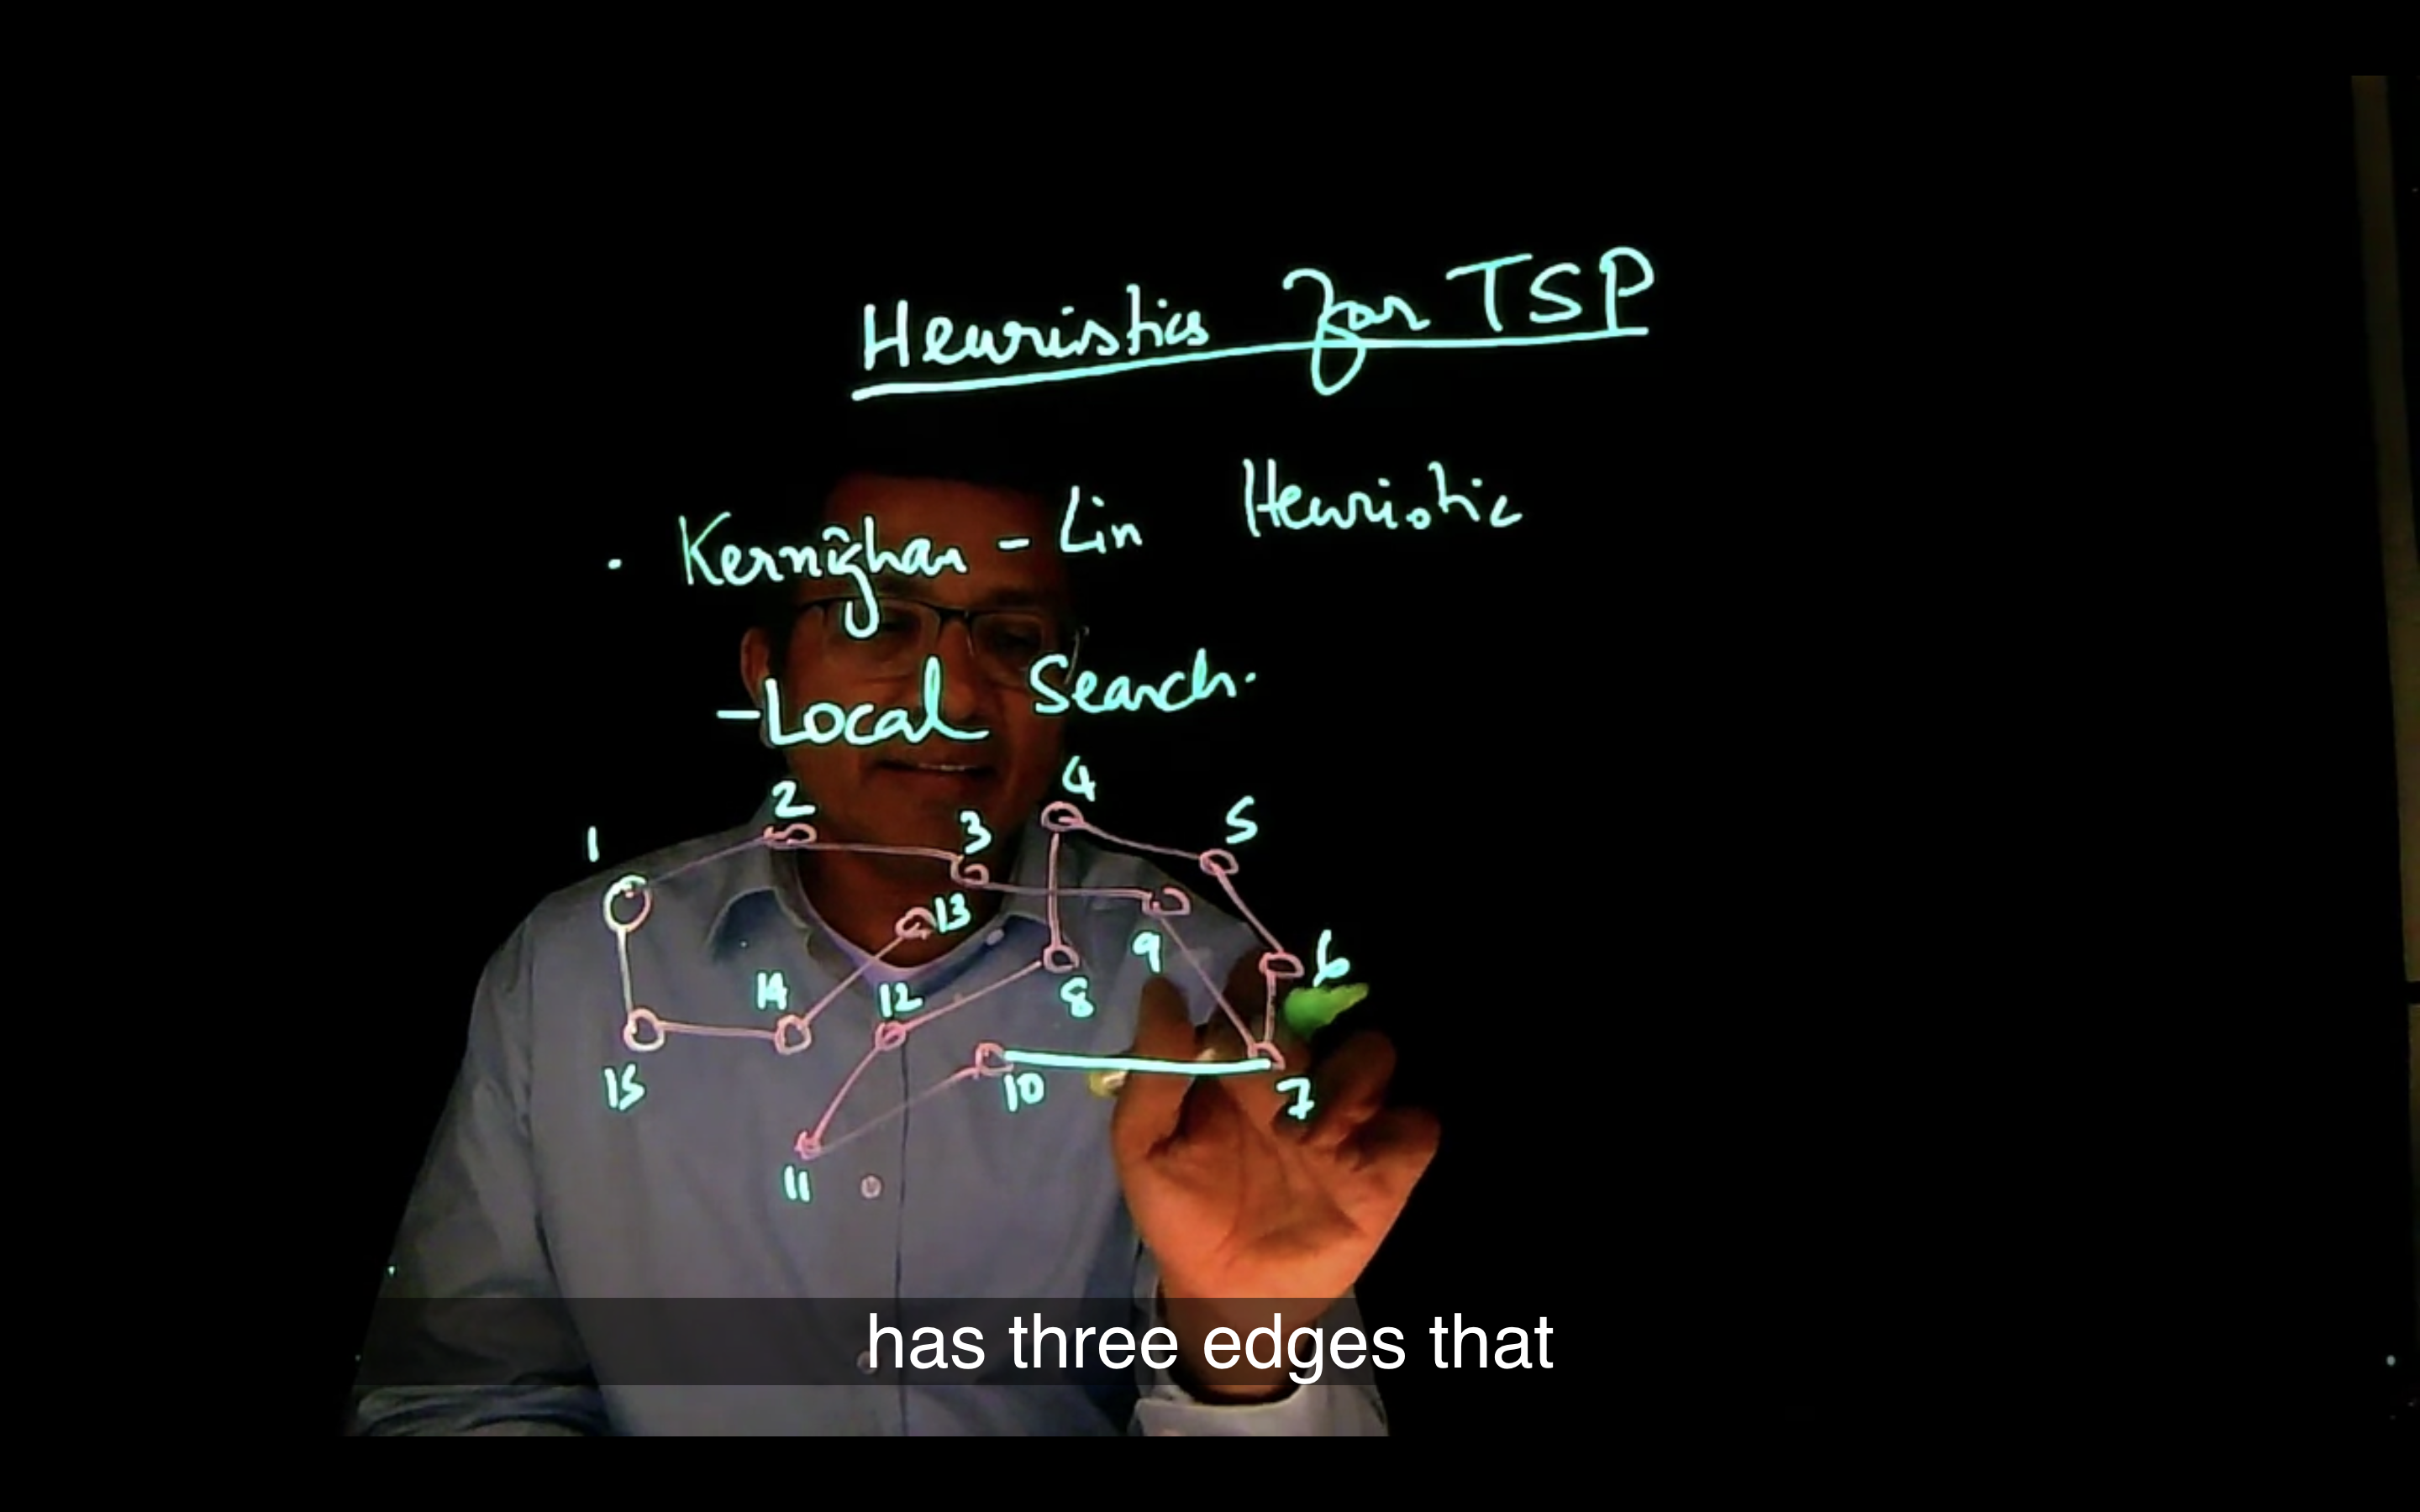 Heuristics for TSP
· Kernighan - Lin Heuristic
- Local Search.
4
2
5
1
3
13
9
6
14
12
8
15
10
7
11
has three edges that